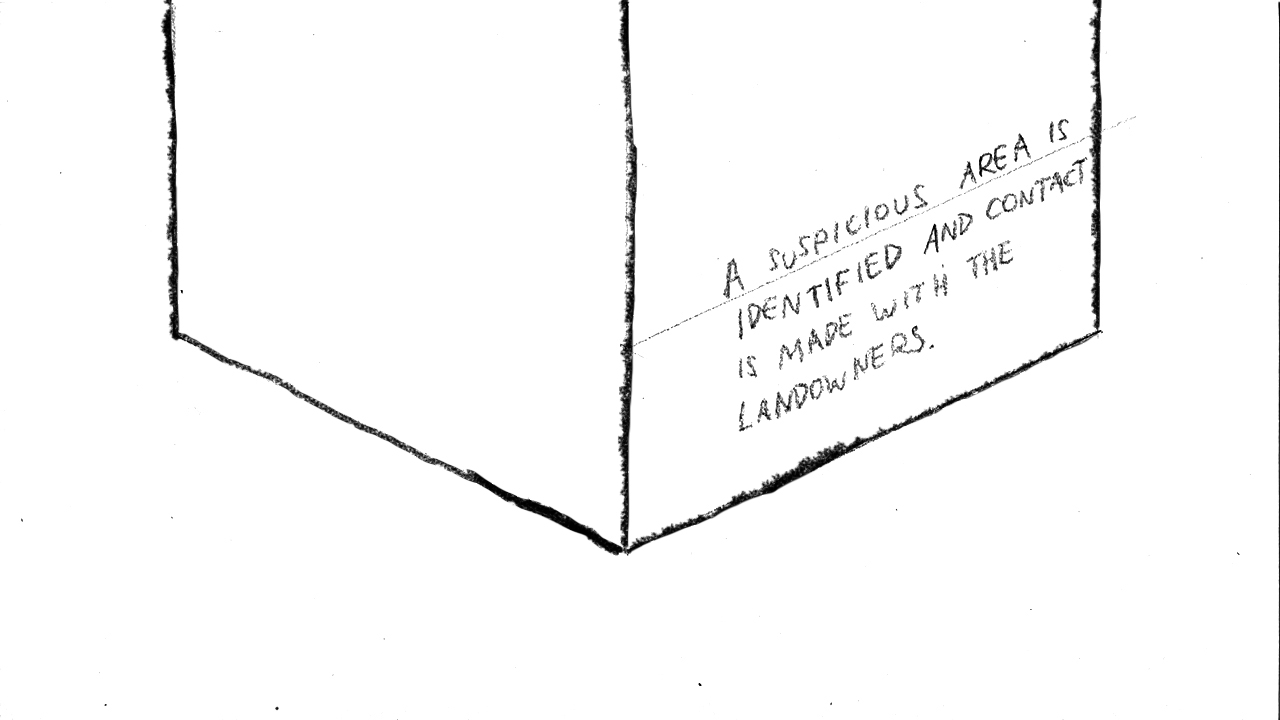 A SUSPICIOUS AREA IS
IDENTIFIED AND CONTACT
IS MADE WITH THE
LANDOWNERS.